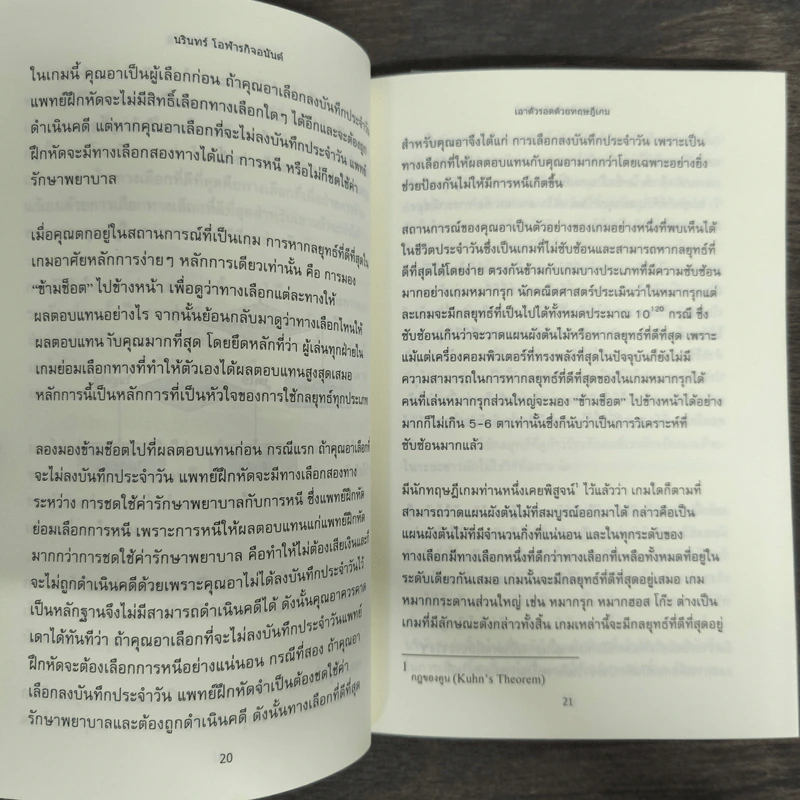 นรินทร์ โอฬารกิจอนันต์
ในเกมนี้ คุณอาเป็นผู้เลือกก่อน ถ้าคุณอาเลือกลงบันทึกประจำวัน
แพทย์ฝึกหัดจะไม่มีสิทธิ์เลือกทางเลือกใดๆ ได้อีกและจะต้องถูก
ดำเนินคดี แต่หากคุณอาเลือกที่จะไม่ลงบันทึกประจำวัน แพทย์
ฝึกหัดจะมีทางเลือกสองทางได้แก่ การหนี หรือไม่ก็ชดใช้ค่า
รักษาพยาบาล
เมื่อคุณตกอยู่ในสถานการณ์ที่เป็นเกม การหากลยุทธ์ที่ดีที่สุดใน
เกมอาศัยหลักการง่ายๆ หลักการเดียวเท่านั้น คือ การมอง
“ข้ามช็อต” ไปข้างหน้า เพื่อดูว่าทางเลือกแต่ละทางให้
ผลตอบแทนอย่างไร จากนั้นย้อนกลับมาดูว่าทางเลือกไหนให้
ผลตอบแทน กับคุณมากที่สุด โดยยึดหลักที่ว่า ผู้เล่นทุกฝ่ายใน
เกมย่อมเลือกทางที่ทำให้ตัวเองได้ผลตอบแทนสูงสุดเสมอ
หลักการนี้เป็นหลักการที่เป็นหัวใจของการใช้กลยุทธ์ทุกประเภท
ลองมองข้ามช็อตไปที่ผลตอบแทนก่อน กรณีแรก ถ้าคุณอาเลือกที่
จะไม่ลงบันทึกประจำวัน แพทย์ฝึกหัดจะมีทางเลือกสองทาง
ระหว่าง การชดใช้ค่ารักษาพยาบาลกับการหนี ซึ่งแพทย์ฝึกหัด
ย่อมเลือกการหนี เพราะการหนีให้ผลตอบแทนแก่แพทย์ฝึกหัด
มากกว่าการชดใช้ค่ารักษาพยาบาล คือทำให้ไม่ต้องเสียเงินและก็
จะไม่ถูกดำเนินคดีด้วยเพราะคุณอาไม่ได้ลงบันทึกประจำวันไว้
เป็นหลักฐานจึงไม่มีสามารถดำเนินคดีได้ ดังนั้นคุณอาควรคาด
เดาได้ทันทีว่า ถ้าคุณอาเลือกที่จะไม่ลงบันทึกประจำวันแพทย์
ฝึกหัดจะต้องเลือกการหนีอย่างแน่นอน กรณีที่สอง ถ้าคุณอา
เลือกลงบันทึกประจำวัน แพทย์ฝึกหัดจำเป็นต้องชดใช้ค่า
รักษาพยาบาลและต้องถูกดำเนินคดี ดังนั้นทางเลือกที่ดีที่สุด
20
เอาตัวรอดด้วยทฤษฎีเกม
สำหรับคุณอาจึงได้แก่ การเลือกลงบันทึกประจำวัน เพราะเป็น
ทางเลือกที่ให้ผลตอบแทนกับคุณอามากกว่าโดยเฉพาะอย่างยิ่ง
ช่วยป้องกันไม่ให้มีการหนีเกิดขึ้น
สถานการณ์ของคุณอาเป็นตัวอย่างของเกมอย่างหนึ่งที่พบเห็นได้
ในชีวิตประจำวันซึ่งเป็นเกมที่ไม่ซับซ้อนและสามารถหากลยุทธ์ที่
ดีที่สุดได้โดยง่าย ตรงกันข้ามกับเกมบางประเภทที่มีความซับซ้อน
มากอย่างเกมหมากรุก นักคณิตศาสตร์ประเมินว่าในหมากรุกแต่
ละเกมจะมีกลยุทธ์ที่เป็นไปได้ทั้งหมดประมาณ 10¹²⁰ กรณี ซึ่ง
ซับซ้อนเกินกว่าจะวาดแผนผังต้นไม้หรือหากลยุทธ์ที่ดีที่สุด เพราะ
แม้แต่เครื่องคอมพิวเตอร์ที่ทรงพลังที่สุดในปัจจุบันก็ยังไม่มี
ความสามารถในการหากลยุทธ์ที่ดีที่สุดของในเกมหมากรุกได้
คนที่เล่นหมากรุกส่วนใหญ่จะมอง “ข้ามช็อต” ไปข้างหน้าได้อย่าง
มากก็ไม่เกิน 5-6 ตาเท่านั้นซึ่งก็นับว่าเป็นการวิเคราะห์ที่
ซับซ้อนมากแล้ว
มีนักทฤษฎีเกมท่านหนึ่งเคยพิสูจน์¹ ไว้แล้วว่า เกมใดก็ตามที่
สามารถวาดแผนผังต้นไม้ที่สมบูรณ์ออกมาได้ กล่าวคือเป็น
แผนผังต้นไม้ที่มีจำนวนกิ่งที่แน่นอน และในทุกระดับของ
ทางเลือกมีทางเลือกหนึ่งที่ดีกว่าทางเลือกที่เหลือทั้งหมดที่อยู่ใน
ระดับเดียวกันเสมอ เกมนั้นจะมีกลยุทธ์ที่ดีที่สุดอยู่เสมอ เกม
หมากกระดานส่วนใหญ่ เช่น หมากรุก หมากฮอส โก๊ะ ต่างเป็น
เกมที่มีลักษณะดังกล่าวทั้งสิ้น เกมเหล่านี้จะมีกลยุทธ์ที่ดีที่สุดอยู่
1
กฎของคูน (Kuhn's Theorem)
21